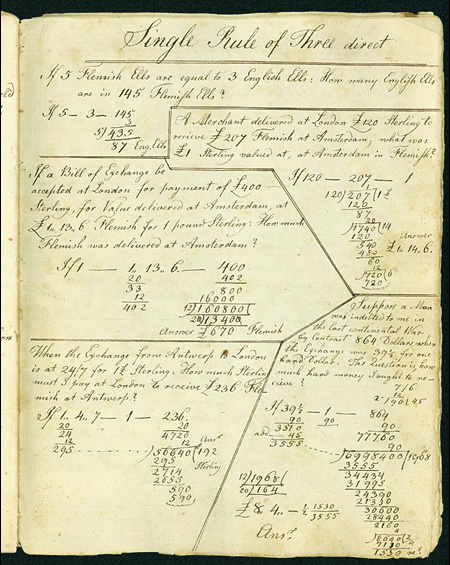 Single Rule of Three direct
If 5 Flemish Ells are equal to 3 English Ells: How many English Ells
are in 145 Flemish Ells?
If 5 – 3 – 145
3
5)435
87 Eng. Ells
A Merchant delivered at London £120 Sterling to
recieve £207 Flemish at Amsterdam, what was
£1 Sterling valued at, at Amsterdam in Flemish?
If 120 — 207 — 1
1
120)207(1£
120
87
20
1740(14
120
540
480
60
12
720(6
720
Answer
£1.. 14.. 6.
If a Bill of Exchange be
accepted at London for payment of £400 –
Sterling, for Value delivered at Amsterdam, at
£1.. 13.. 6 Flemish for 1 pound Sterling: How much
Flemish was delivered at Amsterdam?
If 1 — 1.. 13.. 6. — 400
20 402
33 800
12 16000
402 12)160800
20)13400
Answer £670 Flemish
When the Exchange from Antwerp to London
is at 24/7 for 1£ Sterling: How much Sterling
must I pay at London to receive £236 Fle
mish at Antwerp?
If 1.. 4.. 7 — 1 — 236
20 20
24 4720
12 12
295 )56640(192
295
2714
2655
590
590
Ansr
Sterling
Suppose a Man
was indicted to me in
the last continental War
by Contract 864 Dollars, when
the Exchange was 39½ for one
hard Dollar. The Question is, how
much hard money I ought to re-
cieve?
7/6
2
190
45
If 39½ — 1 — 864
90 90 90
3510 77760
45 90
3555 )6998400(1968
3555
34434
31995
24390
21330
30600
28440
2160
4
8090(2
7110
1530
12)1968(
20)164
£8.. 4.. – ½ 1530
3555
Ansr.